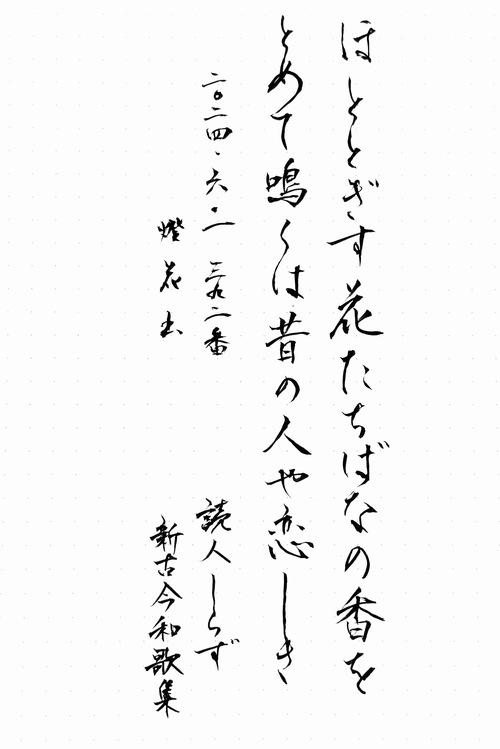 ほととぎす花たちばなの香を
とめて鳴くは昔の人や恋しき
二〇二四・六・一 三九二番
読人しらず
燈花
新古今和歌集